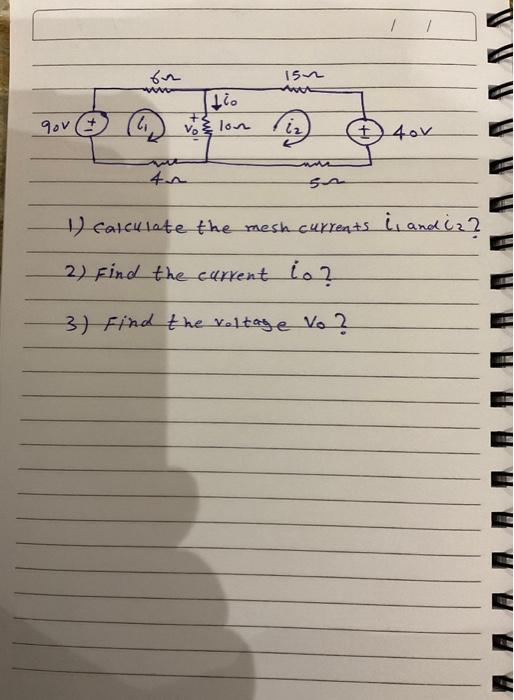 / /
6Ω 15Ω
↓io
90V + - i1 + Vo - 10Ω i2 + - 40V
4Ω 5Ω
1) Calculate the mesh currents i1 and i2?
2) Find the current io?
3) Find the voltage Vo?